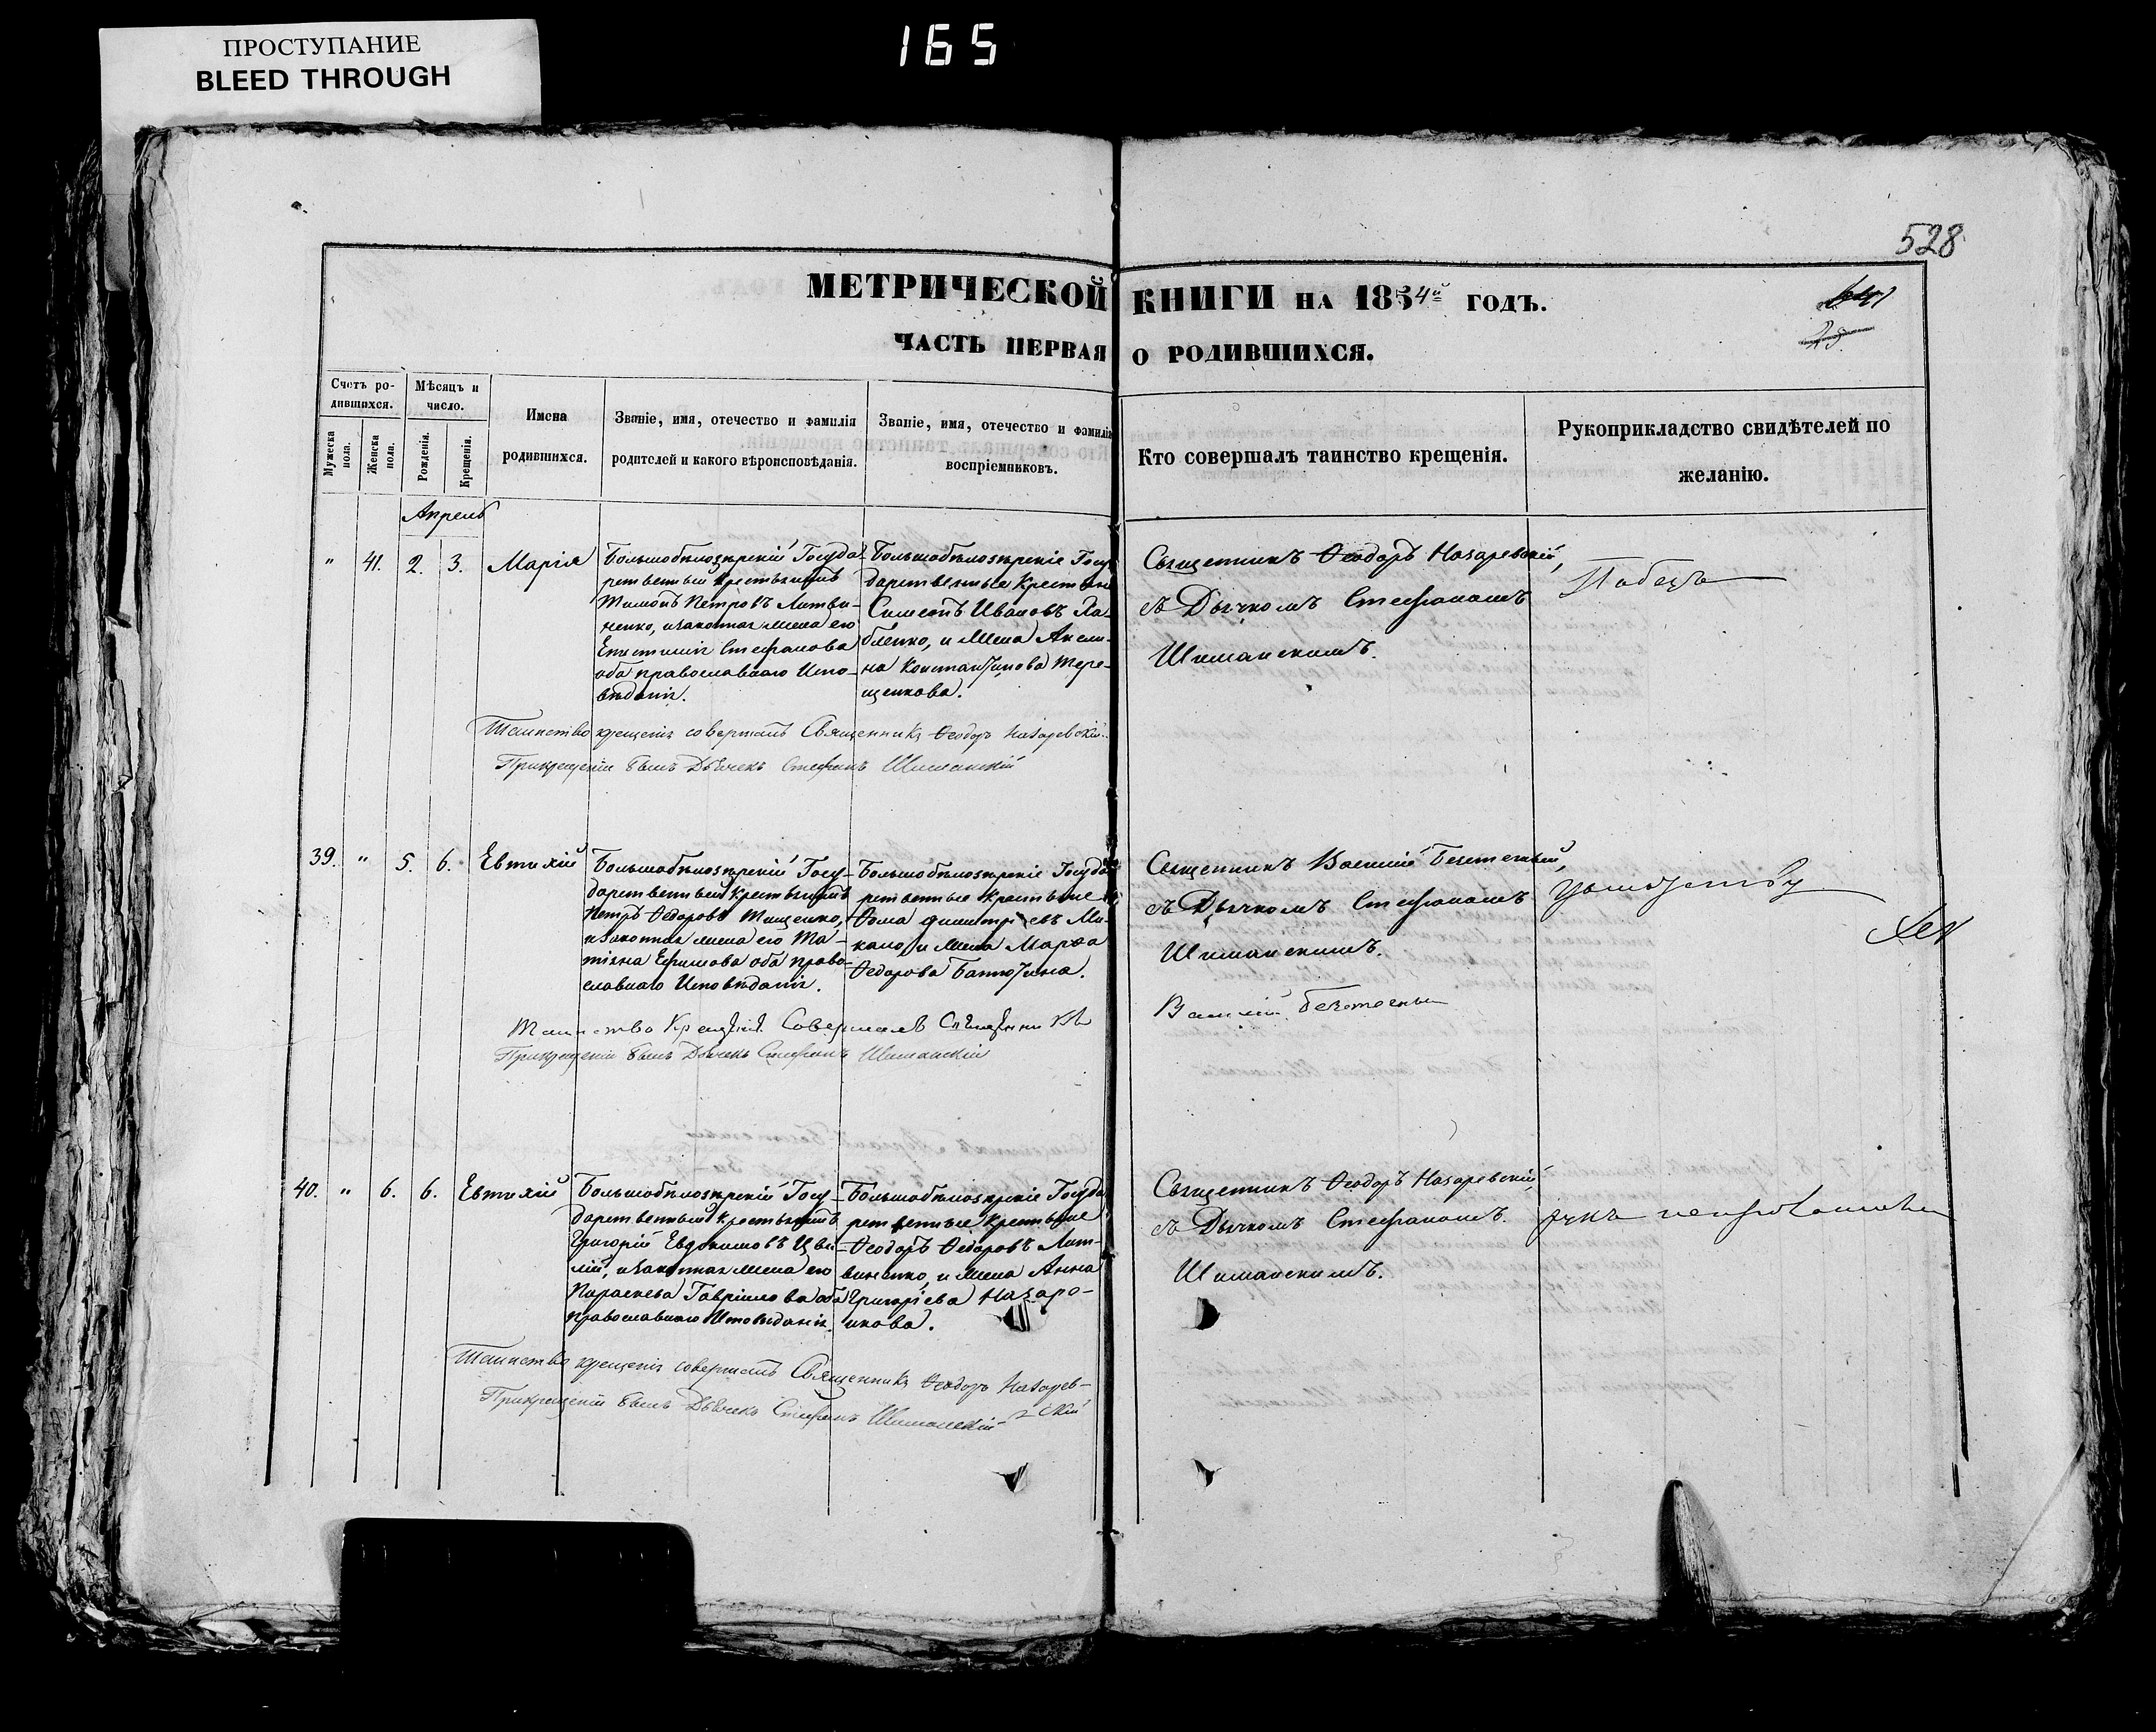 ПРОСТУПАНИЕ
BLEED THROUGH
165
528
МЕТРИЧЕСКОЙ КНИГИ НА 1854й ГОДЪ.
ЧАСТЬ ПЕРВАЯ О РОДИВШИХСЯ.
Счетъ ро-
дившихся.
Мужеска
пола.
Женска
пола.
Мѣсяцъ и
число.
Рожденія.
Крещенія.
Имена
родившихся.
Званіе, имя, отечество и фамилія
родителей и какого вѣроисповѣданія.
Званіе, имя, отечество и фамилія
воспріемниковъ.
Кто совершалъ таинство крещенія.
Рукоприкладство свидѣтелей по
желанію.
Апрель
" 41. 2. 3. Марія
Большобѣлозѣрскій Госуда-
рственный крестьянинъ
Петровъ Литви-
ненко, и законная жена его
Стефанова
оба православнаго Испо-
вѣданія.
Большобѣлозѣрскіе Госу-
дарственные Крестьяне
Симеонъ Ивановъ
и жена Акели-
на Константинова Тере-
щенкова.
Священникъ Ѳеодоръ Назаревскій,
съ Дьячкомъ Стефаномъ
Шиманскимъ.
Таинство крещенія совершалъ Священникъ Ѳеодоръ Назаревскій
При крещеніи былъ Дьячекъ Стефанъ Шиманскій
39. " 5. 6. Евтихій
Большобѣлозѣрскій Госу-
дарственный крестьянинъ
Петръ Ѳедоровъ Тищенко,
и законная жена его Та-
тіяна Ефимова оба право-
славнаго Исповѣданія.
Большобѣлозѣрскіе Госуда-
рственные крестьяне
Ѳома Димитріевъ
и жена Марѳа
Ѳедорова
Священникъ Василій
съ Дьячкомъ Стефаномъ
Шиманскимъ.
Таинство Крещенія Совершалъ Священникъ
Василій
При крещеніи былъ Дьячекъ Стефанъ Шиманскій
40. " 6. 6. Евтихій
Большобѣлозѣрскій Госу-
дарственный крестьянинъ
Григорій Евдокимовъ Цви-
лій, и законная жена его
Параскева Гавріилова оба
православнаго Исповѣданія.
Большобѣлозѣрскіе Госуда-
рственные крестьяне
Ѳеодоръ Ѳедоровъ Лит-
виненко, и жена Анна
Григоріева Назаро-
Священникъ Ѳеодоръ Назаревскій,
съ Дьячкомъ Стефаномъ
Шиманскимъ.
Таинство крещенія совершалъ Священникъ Ѳеодоръ Назарев-
скій
При крещеніи былъ Дьячекъ Стефанъ Шиманскій